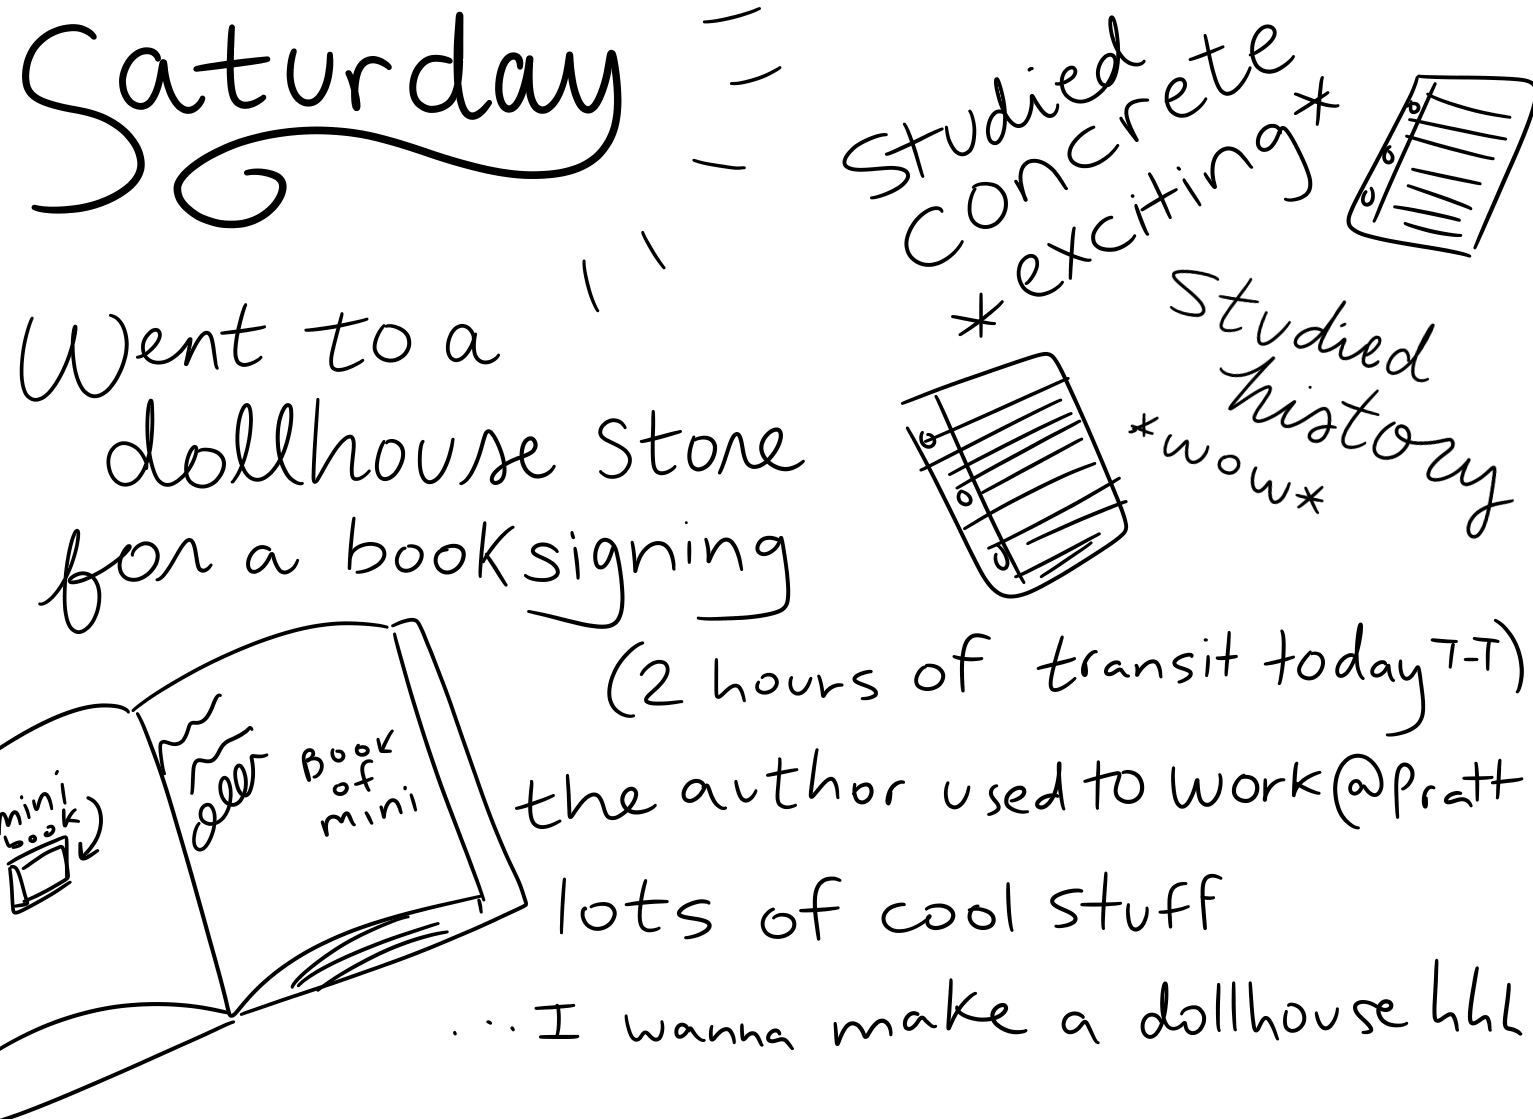 Saturday
Studied
concrete
*exciting*
Studied
history
*wow*
Went to a
dollhouse store
for a book signing
(2 hours of transit today T-T)
the author used to work @ Pratt
lots of cool stuff
...I wanna make a dollhouse hhh
mini
book
Book
of
mini